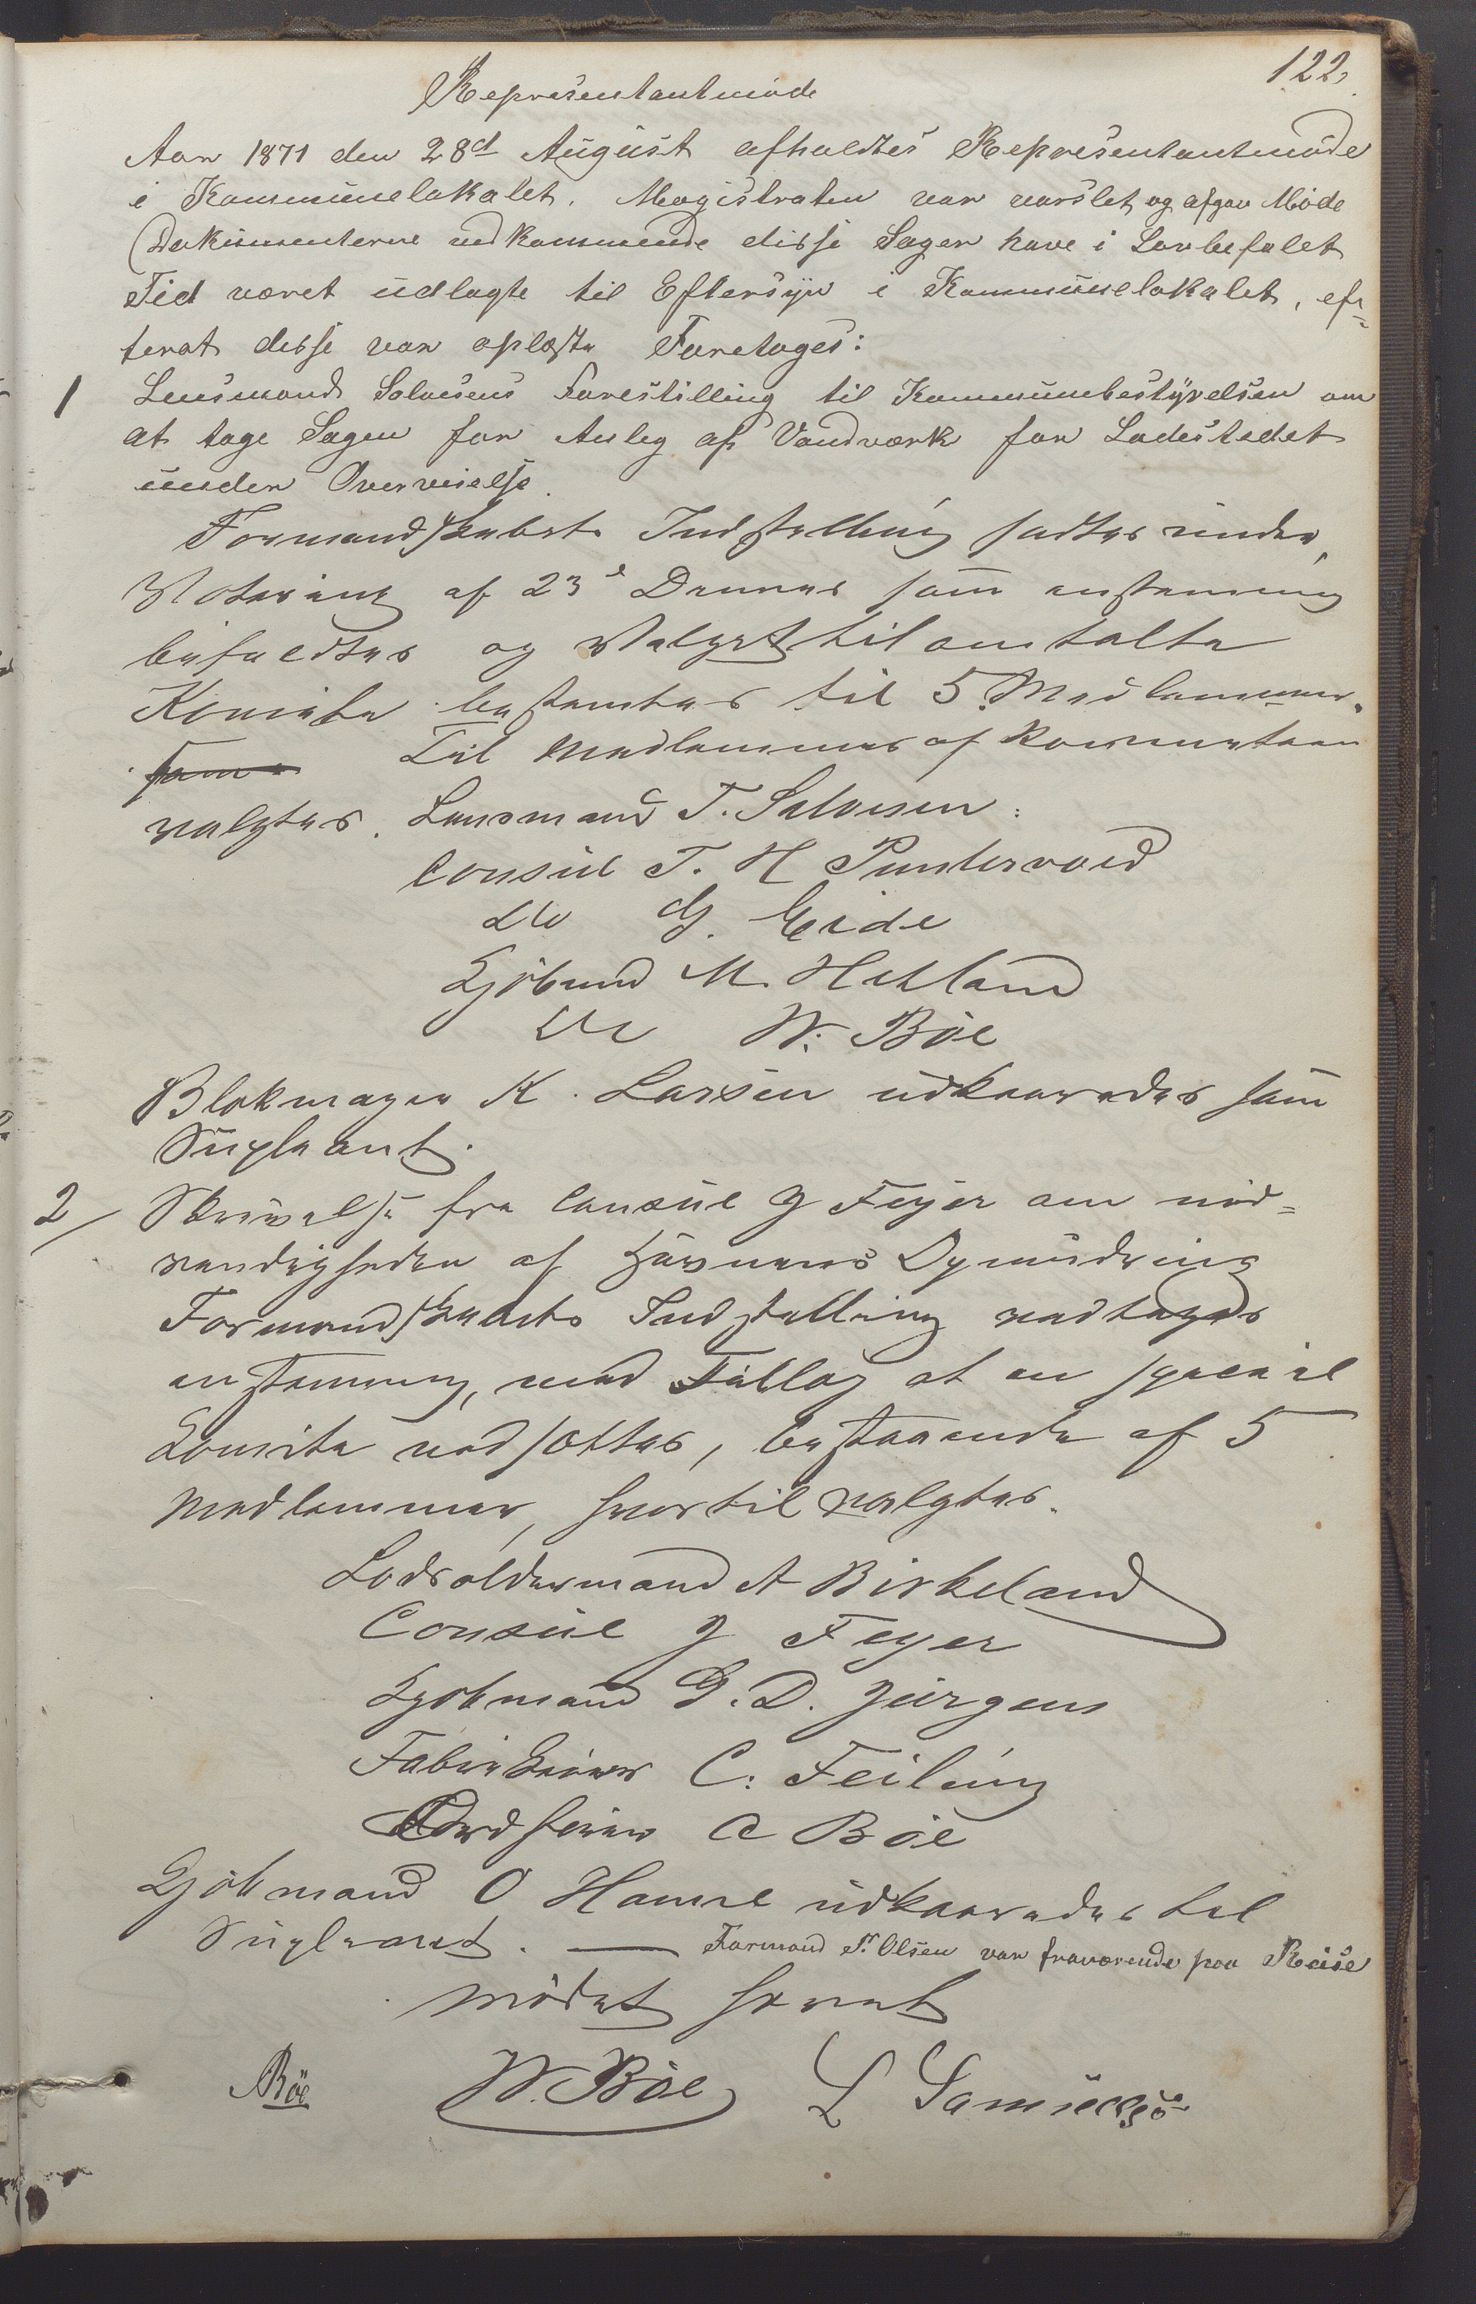 122.
Representantmøde
Aar 1871 den 28d August afholdtes Representantmøde
i Kommunelokalet. Magistraten var varslet og afgav Møde
Dokumenterne vedkommende disse Sager have i Lovbefalet
Tid været udlagte til Eftersyn i Kommunelokalet, ef=
terat disse var oplæste Foretoges:
1 Lensmand Salvesens Forestilling til Kommunebestyrelsen om
at tage Sagen for Anleg af Vandværk for Ladestedet
under Overveielse.
Formandskabets Indstelling sattes under
Votering af 23de Dennes som enstemmig
bifaldtes og Valget til omtalte
Komite bestemtes til 5 Medlemmer.
som Til Medlemmer af Kommeteen
valgtes. Lensmand T. Salvesen:
Consul T. H Puntervold
Do G. Eide
Kjøbmd M. Hetland
Do W. Böe
Blokmager K. Larsen udkaaredes som
Supleant.
2/ Skrivelse fra Consul J Feyer om nød=
vendigheden af Havnens Opmudring
Formandskabets Indstelling vedtoges
enstemmig, med Tillæg at en speciel
Komite nedsættes, bestaaende af 5
Medlemmer, hvortil valgtes.
Lodsoldermand A Birkeland
Consul J Feyer
Kjøbmand G. D. Jürgens
Fabrikeier C. Feiling
Ordfører C Böe
Kjøbmand O Hamre udkaaredes til
Supleant. — Formand P. Olsen var fraværende paa Reise
Mødet hævet
Böe W. Böe L Samuelsen